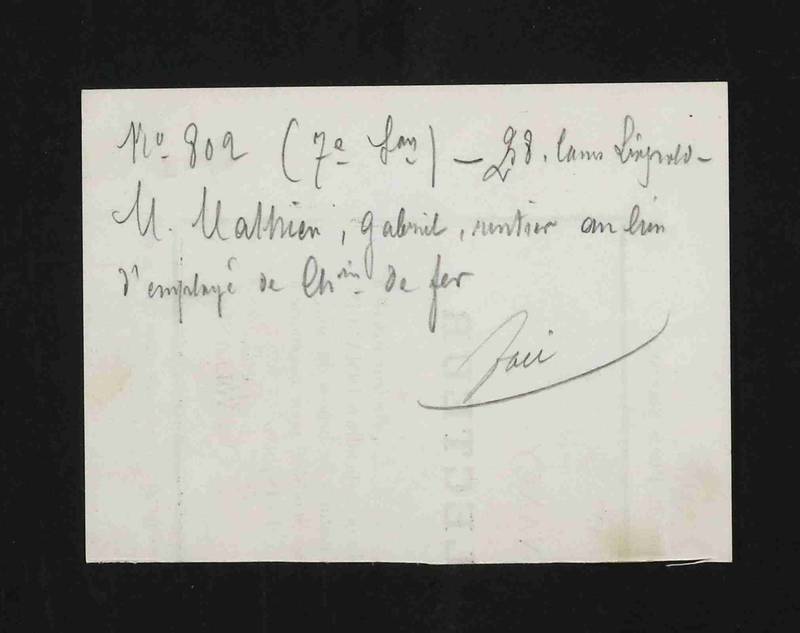 No 802 (7e Son) - 28, cours Léopold -
M. Mathieu, Gabriel, rentier au lieu
d'employé de Chin de fer
fait